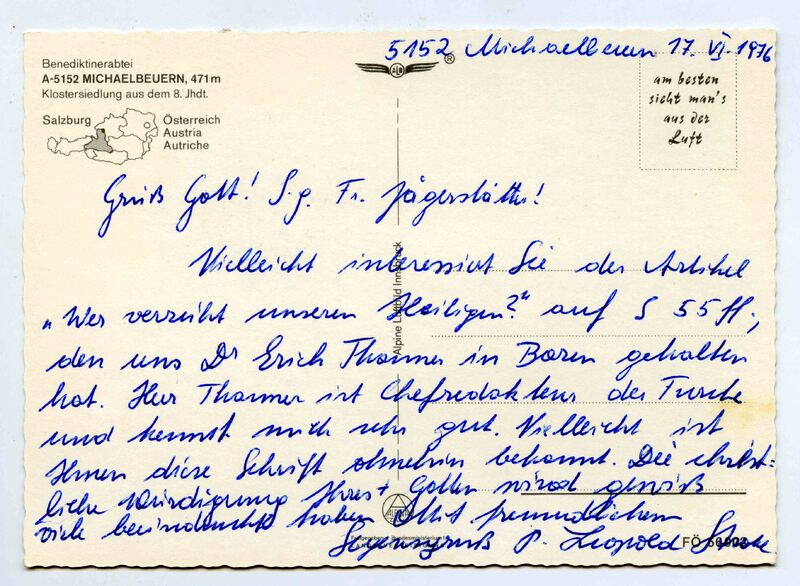 5152 Michaelbeuern 17. VI. 1976
Benediktinerabtei
A-5152 MICHAELBEUERN, 471 m
Klostersiedlung aus dem 8. Jhdt.
Salzburg
Österreich
Austria
Autriche
®
am besten
sieht man's
aus der
Luft
Gruß Gott! S. g. Fr. Jägerstätter!
Vielleicht interessiert Sie der Artikel
„Wer verzeiht unseren Heiligen?" auf S 55 ff.,
den uns Dr Erich Thanner in Bozen gehalten
hat. Herr Thanner ist Chefredakteur der Furche
und kennt mich sehr gut. Vielleicht ist
Ihnen diese Schrift ohnehin bekannt. Die christ=
liche Würdigung Ihres + Gatten wird gewiß
viele beeindruckt haben Mit freundlichem
Segensgruß P. Leopold
Alpine Luftbild Innsbruck
FÖ